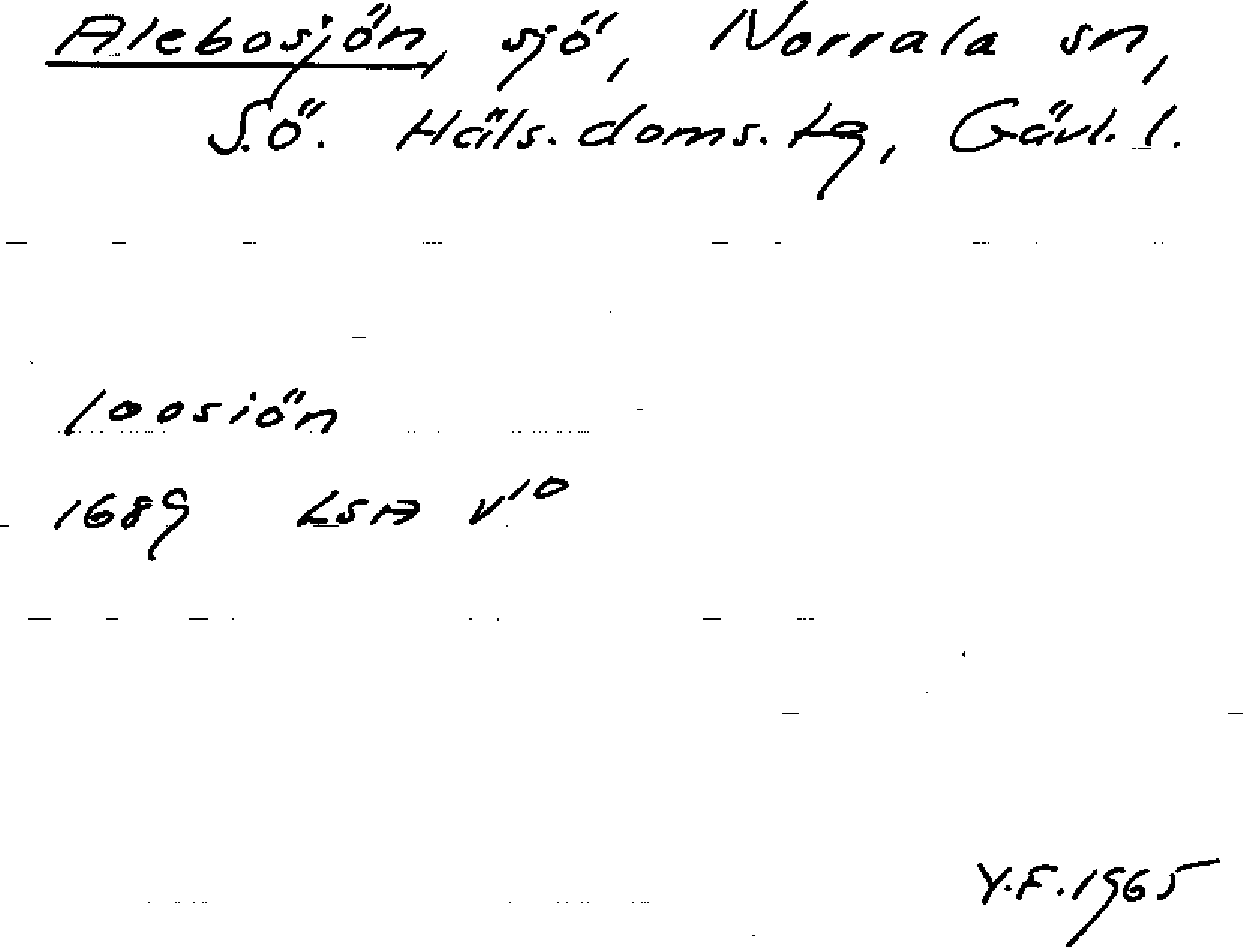 Alebosjön, sjö, Norrala sn,
S.ö. Häls. doms. tg, Gävl. l.
loosiön
1689 LSA v10
Y.F. 1965